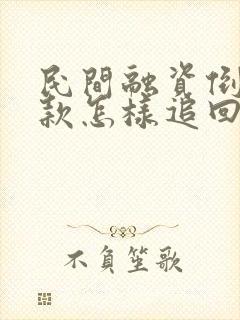 民間融資倒
款怎樣追回
不負笙歌